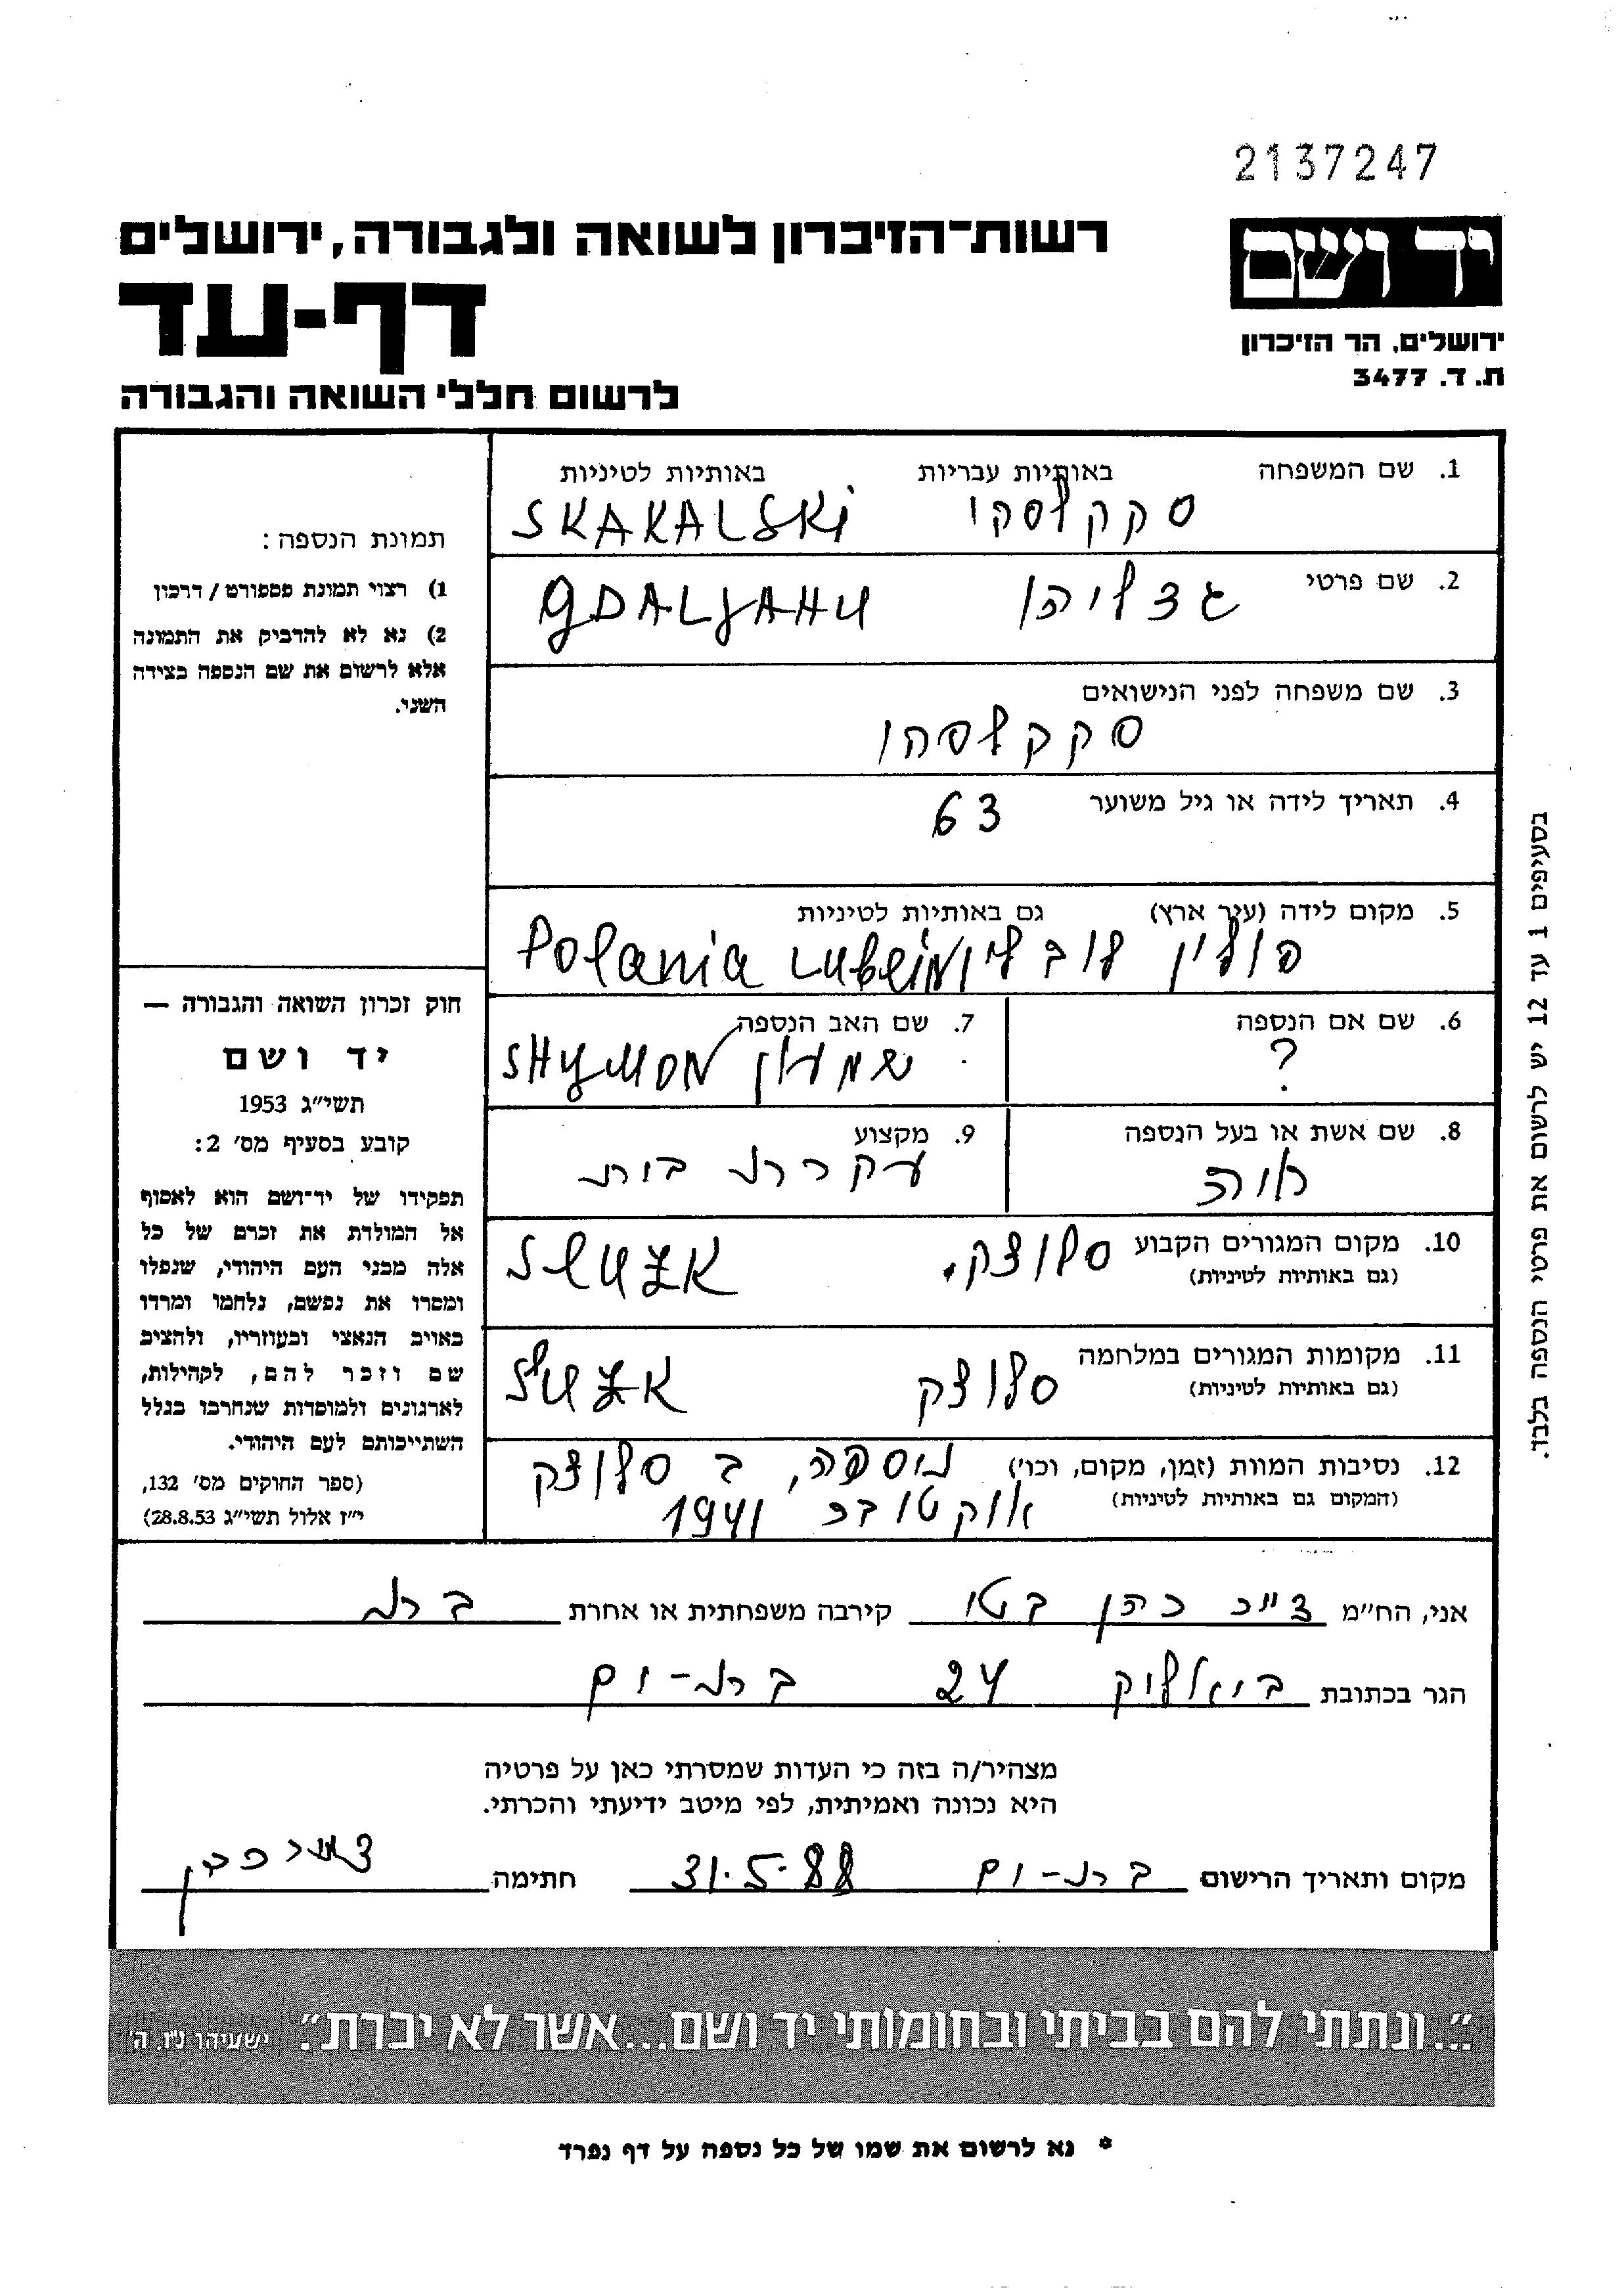 2137247
יד ושם
ירושלים, הר הזיכרון
ת. ד. 3477
רשות־הזיכרון לשואה ולגבורה, ירושלים
דף-עד
לרשום חללי השואה והגבורה
1. שם המשפחה באותיות עבריות באותיות לטיניות
סקקלסקי SKAKALSKi
2. שם פרטי גדליהו GDALJAHU
3. שם משפחה לפני הנישואים
4. תאריך לידה או גיל משוער 63
5. מקום לידה (עיר ארץ) גם באותיות לטיניות
פולין לובלין Polania Lublin
6. שם אם הנספה
?
7. שם האב הנספה
שמעון SHYMON
8. שם אשת או בעל הנספה
9. מקצוע
עקרת בית
10. מקום המגורים הקבוע סלוצק. SLUZK
(גם באותיות לטיניות)
11. מקומות המגורים במלחמה
(גם באותיות לטיניות) סלוצק SLUZK
12. נסיבות המוות (זמן, מקום, וכו׳) נוספה, ב סלוצק
(המקום גם באותיות לטיניות) אוקטובר 1941
תמונת הנספה:
1) רצוי תמונת פספורט / דרכון
2) נא לא להדביק את התמונה
אלא לרשום את שם הנספה בצידה
השני.
חוק זכרון השואה והגבורה —
יד ושם
תשי״ג 1953
קובע בסעיף מס׳ 2:
תפקידו של יד־ושם הוא לאסוף
אל המולדת את זכרם של כל
אלה מבני העם היהודי, שנפלו
ומסרו את נפשם, נלחמו ומרדו
באויב הנאצי ובעוזריו, ולהציב
שם וזכר להם, לקהילות,
לארגונים ולמוסדות שנחרבו בגלל
השתייכותם לעם היהודי.
(ספר החוקים מס׳ 132,
י״ז אלול תשי״ג 28.8.53)
בסעיפים 1 עד 12 יש לרשום את פרטי הנספה בלבד.
אני, הח״מ כהן בטי קירבה משפחתית או אחרת בת
הגר בכתובת ביאליק 24 בת-ים
מצהיר/ה בזה כי העדות שמסרתי כאן על פרטיה
היא נכונה ואמיתית, לפי מיטב ידיעתי והכרתי.
מקום ותאריך הרישום בת-ים 31.5.88 חתימה
״..ונתתי להם בביתי ובחומותי יד ושם...אשר לא יכרת״. ישעיהו נו, ה׳
* נא לרשום את שמו של כל נספה על דף נפרד